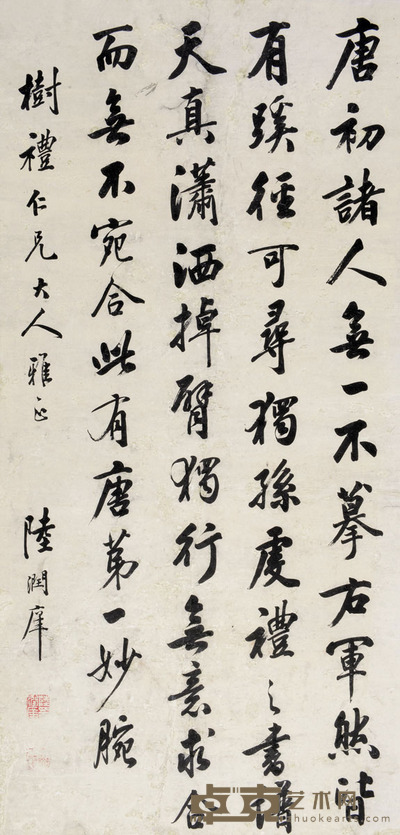 唐初諸人無一不摹右軍然皆
有蹊徑可尋獨孫虔禮之書譜
天真瀟洒掉臂獨行無意求合
而無不宛合此有唐第一妙腕
樹禮仁兄大人雅正
陸潤庠
卓克艺术网
zhuokearts.com